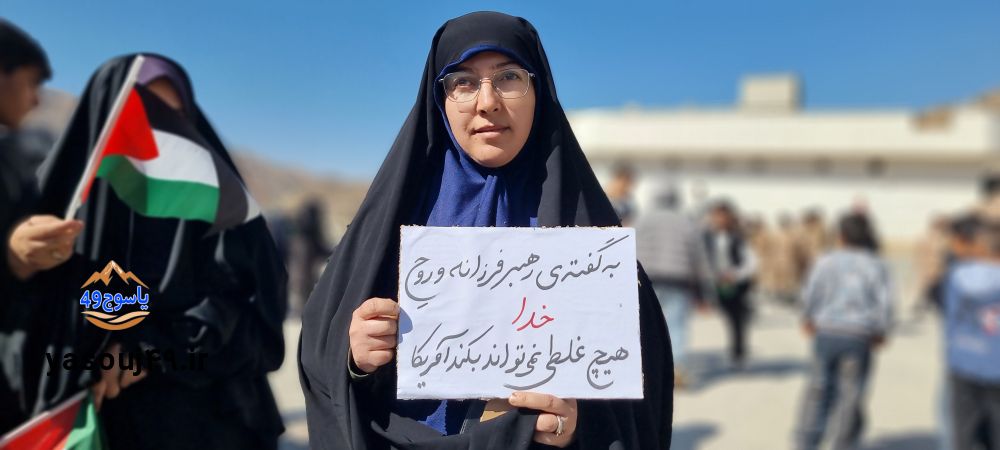 به گفته‌ی رهبر فرزانه و روح
خدا
هیچ غلطی نمی‌تواند بکند آمریکا
یاسوج 49
yasouj49.ir